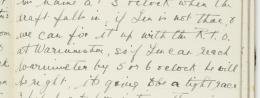 o'clock when the
falls in, if Len is not there, &
we can fix it up with the R.T.O.
at Warminster, so if Len can reach
Warminster by 5 or 6 o'clock he will
be right, it's going to be a tight race